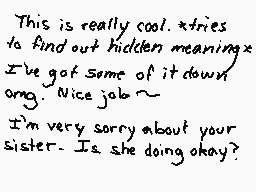 This is really cool. *tries
to find out hidden meaning*
I've got some of it down
omg. Nice job ~
I'm very sorry about your
sister. Is she doing okay?